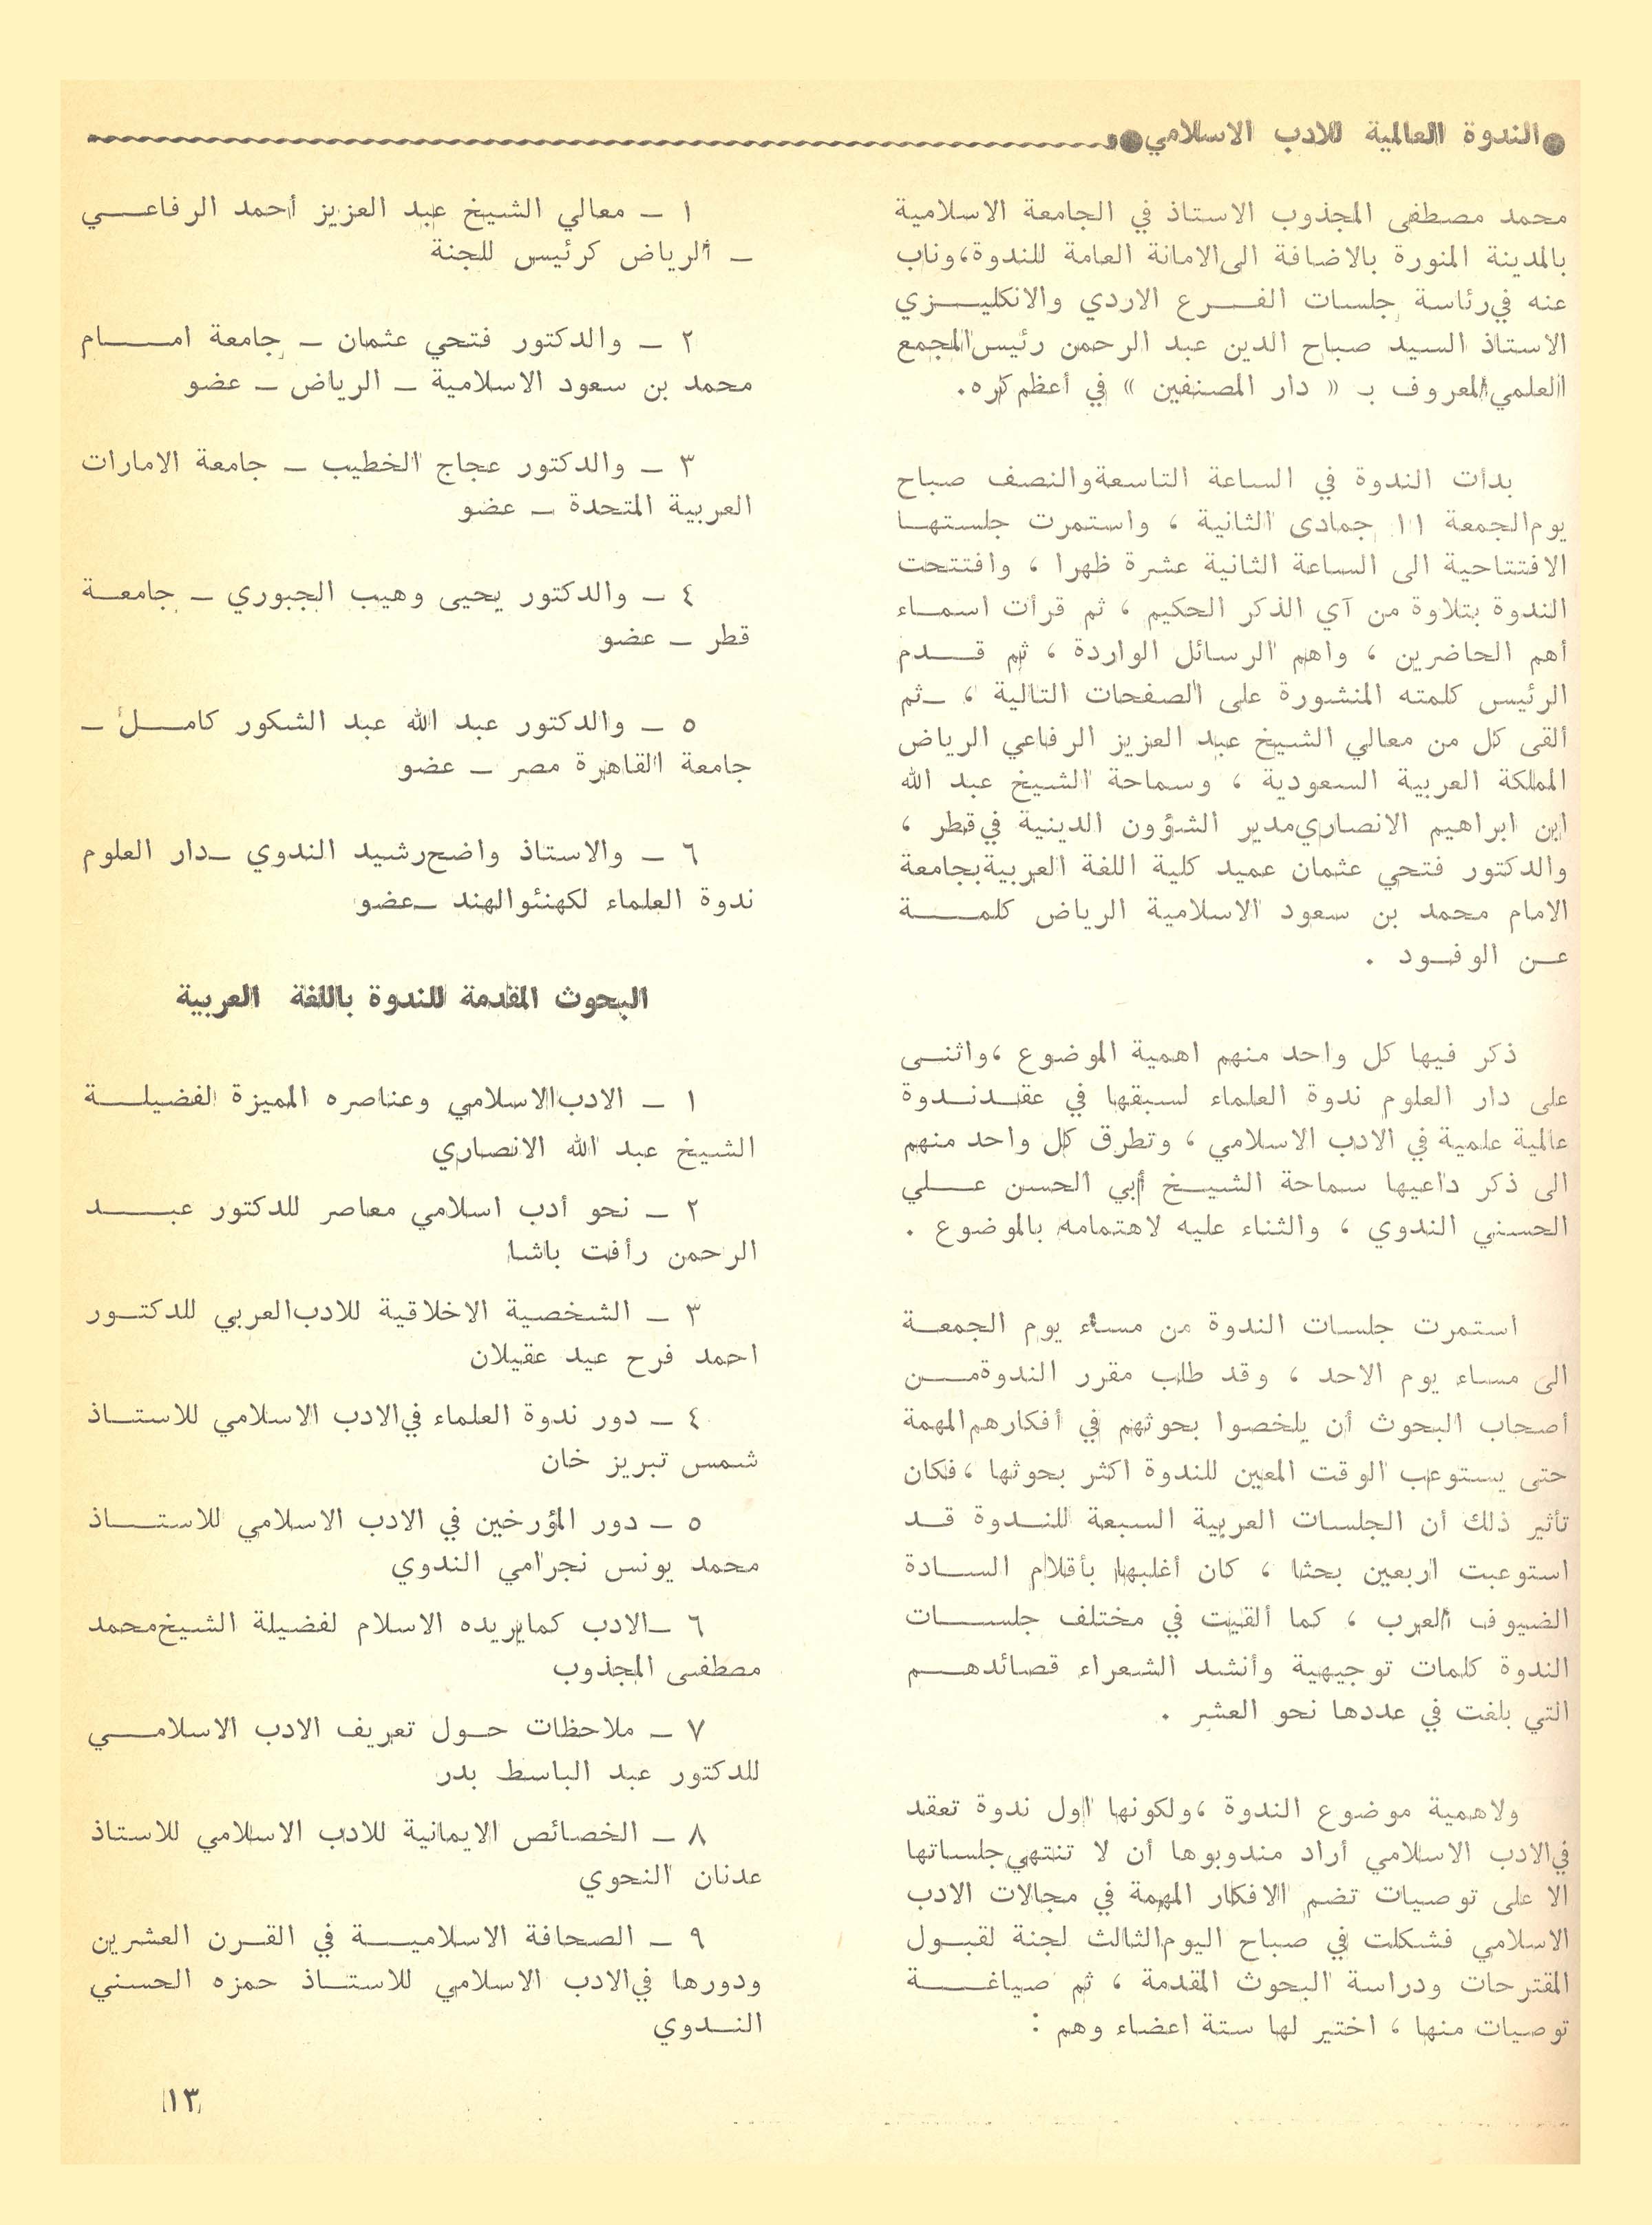 الندوة العالمية للادب الاسلامي
محمد مصطفى المجذوب الاستاذ في الجامعة الاسلامية
بالمدينة المنورة بالاضافة الى الامانة العامة للندوة، وناب
عنه في رئاسة جلسات الفرع الاردي والانكليزي
الاستاذ السيد صباح الدين عبد الرحمن رئيس المجمع
العلمي المعروف بـ « دار المصنفين » في أعظم كره.
بدأت الندوة في الساعة التاسعة والنصف صباح
يوم الجمعة ١١ جمادى الثانية ، واستمرت جلستها
الافتتاحية الى الساعة الثانية عشرة ظهرا ، وافتتحت
الندوة بتلاوة من آي الذكر الحكيم ، ثم قرأت اسماء
أهم الحاضرين ، واهم الرسائل الواردة ، ثم قدم
الرئيس كلمته المنشورة على الصفحات التالية ، ـ ثم
ألقى كل من معالي الشيخ عبد العزيز الرفاعي الرياض
المملكة العربية السعودية ، وسماحة الشيخ عبد الله
ابن ابراهيم الانصاري مدير الشؤون الدينية في قطر ،
والدكتور فتحي عثمان عميد كلية اللغة العربية بجامعة
الامام محمد بن سعود الاسلامية الرياض كلمة
عن الوفود .
ذكر فيها كل واحد منهم اهمية الموضوع ، واثنى
على دار العلوم ندوة العلماء لسبقها في عقد ندوة
عالمية علمية في الادب الاسلامي ، وتطرق كل واحد منهم
الى ذكر داعيها سماحة الشيخ أبي الحسن علي
الحسني الندوي ، والثناء عليه لاهتمامه بالموضوع .
استمرت جلسات الندوة من مساء يوم الجمعة
الى مساء يوم الاحد ، وقد طلب مقرر الندوة من
أصحاب البحوث أن يلخصوا بحوثهم في أفكارهم المهمة
حتى يستوعب الوقت المعين للندوة اكثر بحوثها ، فكان
تأثير ذلك أن الجلسات العربية السبعة للندوة قد
استوعبت اربعين بحثا ، كان أغلبها بأقلام السادة
الضيوف العرب ، كما ألقيت في مختلف جلسات
الندوة كلمات توجيهية وأنشد الشعراء قصائدهم
التي بلغت في عددها نحو العشر .
ولاهمية موضوع الندوة ، ولكونها اول ندوة تعقد
في الادب الاسلامي أراد مندوبوها أن لا تنتهي جلساتها
الا على توصيات تضم الافكار المهمة في مجالات الادب
الاسلامي فشكلت في صباح اليوم الثالث لجنة لقبول
المقترحات ودراسة البحوث المقدمة ، ثم صياغة
توصيات منها ، اختير لها ستة اعضاء وهم :
١ ـ معالي الشيخ عبد العزيز أحمد الرفاعي
ـ الرياض كرئيس للجنة
٢ ـ والدكتور فتحي عثمان ـ جامعة امام
محمد بن سعود الاسلامية ـ الرياض ـ عضو
٣ ـ والدكتور عجاج الخطيب ـ جامعة الامارات
العربية المتحدة ـ عضو
٤ ـ والدكتور يحيى وهيب الجبوري ـ جامعة
قطر ـ عضو
٥ ـ والدكتور عبد الله عبد الشكور كامل ـ
جامعة القاهرة مصر ـ عضو
٦ ـ والاستاذ واضح رشيد الندوي ـ دار العلوم
ندوة العلماء لكهنئو الهند ـ عضو
البحوث المقدمة للندوة باللغة العربية
١ ـ الادب الاسلامي وعناصره المميزة لفضيلة
الشيخ عبد الله الانصاري
٢ ـ نحو أدب اسلامي معاصر للدكتور عبد
الرحمن رأفت باشا
٣ ـ الشخصية الاخلاقية للادب العربي للدكتور
احمد فرح عيد عقيلان
٤ ـ دور ندوة العلماء في الادب الاسلامي للاستاذ
شمس تبريز خان
٥ ـ دور المؤرخين في الادب الاسلامي للاستاذ
محمد يونس نجرامي الندوي
٦ ـ الادب كما يريده الاسلام لفضيلة الشيخ محمد
مصطفى المجذوب
٧ ـ ملاحظات حول تعريف الادب الاسلامي
للدكتور عبد الباسط بدر
٨ ـ الخصائص الايمانية للادب الاسلامي للاستاذ
عدنان النحوي
٩ ـ الصحافة الاسلامية في القرن العشرين
ودورها في الادب الاسلامي للاستاذ حمزه الحسني
الندوي
١٣